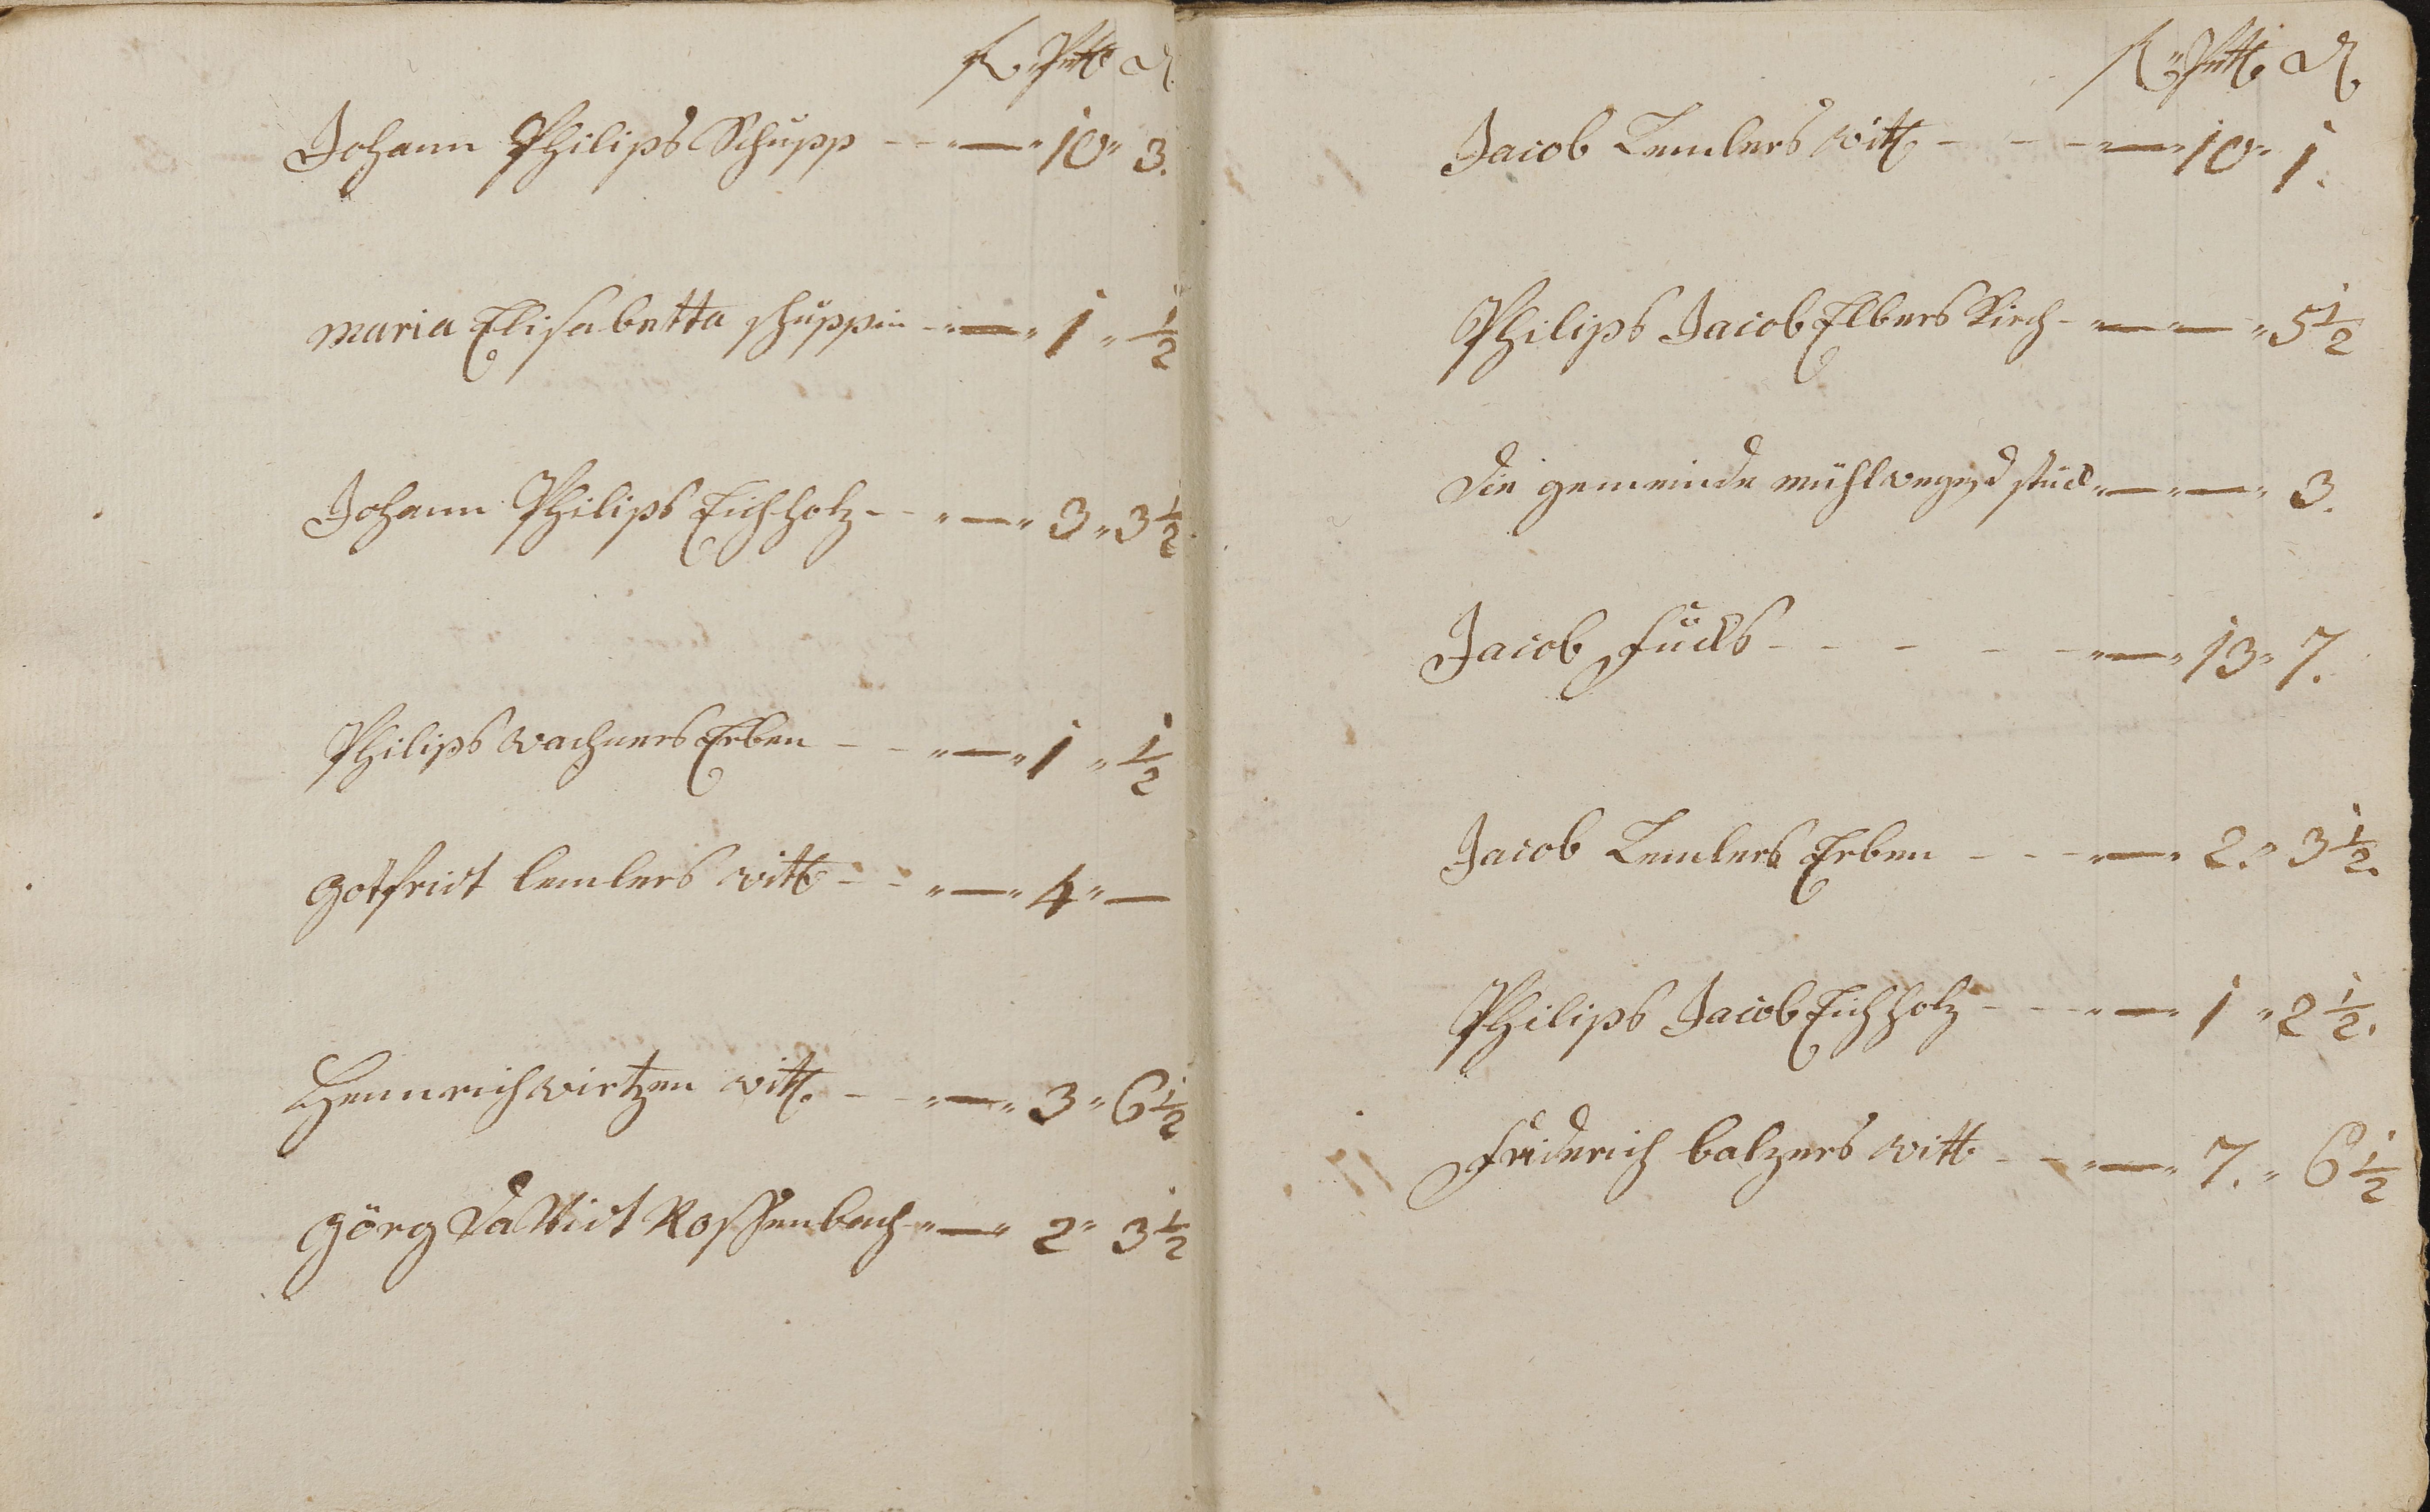 Johann Philips Schupp - - „—„ 10 „ 3.
maria Elisabetta schuppin - „—„ 1 „ ½
Johann Philips Eichholz - - „—„ 3 „ 3½
Philips wachners Erben - - „—„ 1 „ ½
gotfridt lemlers witb - - „—„ 4 „ —
Hennrich wirtzen witt. - - „—„ 3 „ 6½
görg Davidt Roschenbach „—„ 2 „ 3½
Jacob Lemlers witt - - - „—„ 10 „ 1.
Philips Jacob Elbers Kirch - „—„—„ 5½
Die gemeinde mühlweg stück „—„—„ 3.
Jacob fucks - - - - - „—„ 13 „ 7.
Jacob Lemlers Erben - - - „—„ 2. „ 3½.
Philips Jacob Eichholz - - - „—„ 1 „ 2½.
friderich balzers witb - - „—„ 7. „ 6½